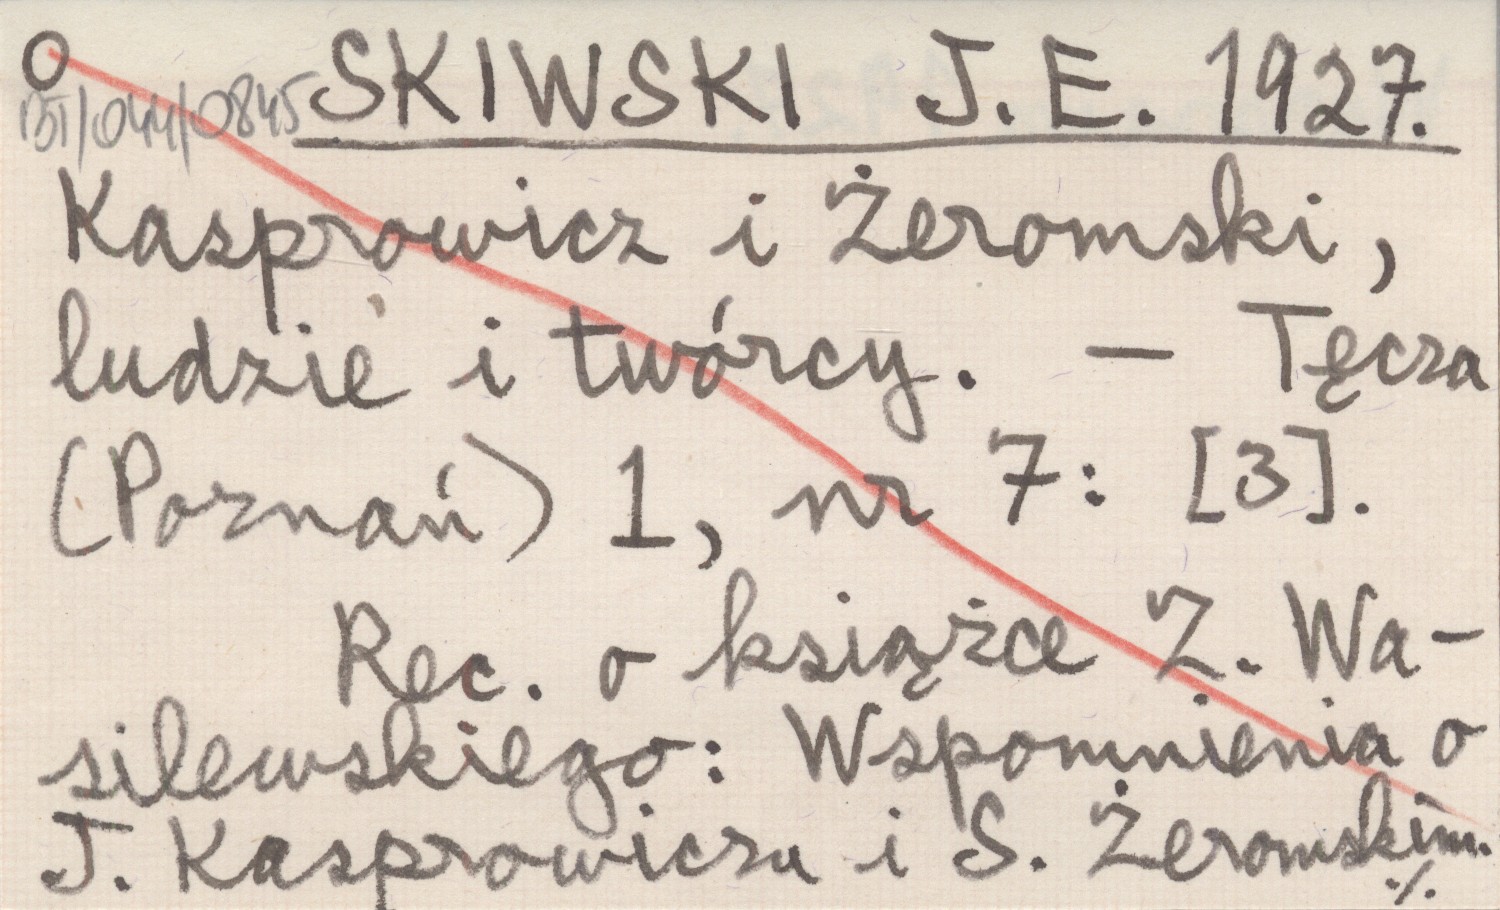 O SKIWSKI J. E. 1927.
BT/044/0845
Kasprowicz i Żeromski,
ludzie i twórcy. — Tęcza
(Poznań) 1, nr 7: [3].
Rec. o książce Z. Wa-
silewskiego: Wspomnienia o
J. Kasprowiczu i S. Żeromskim.
./.